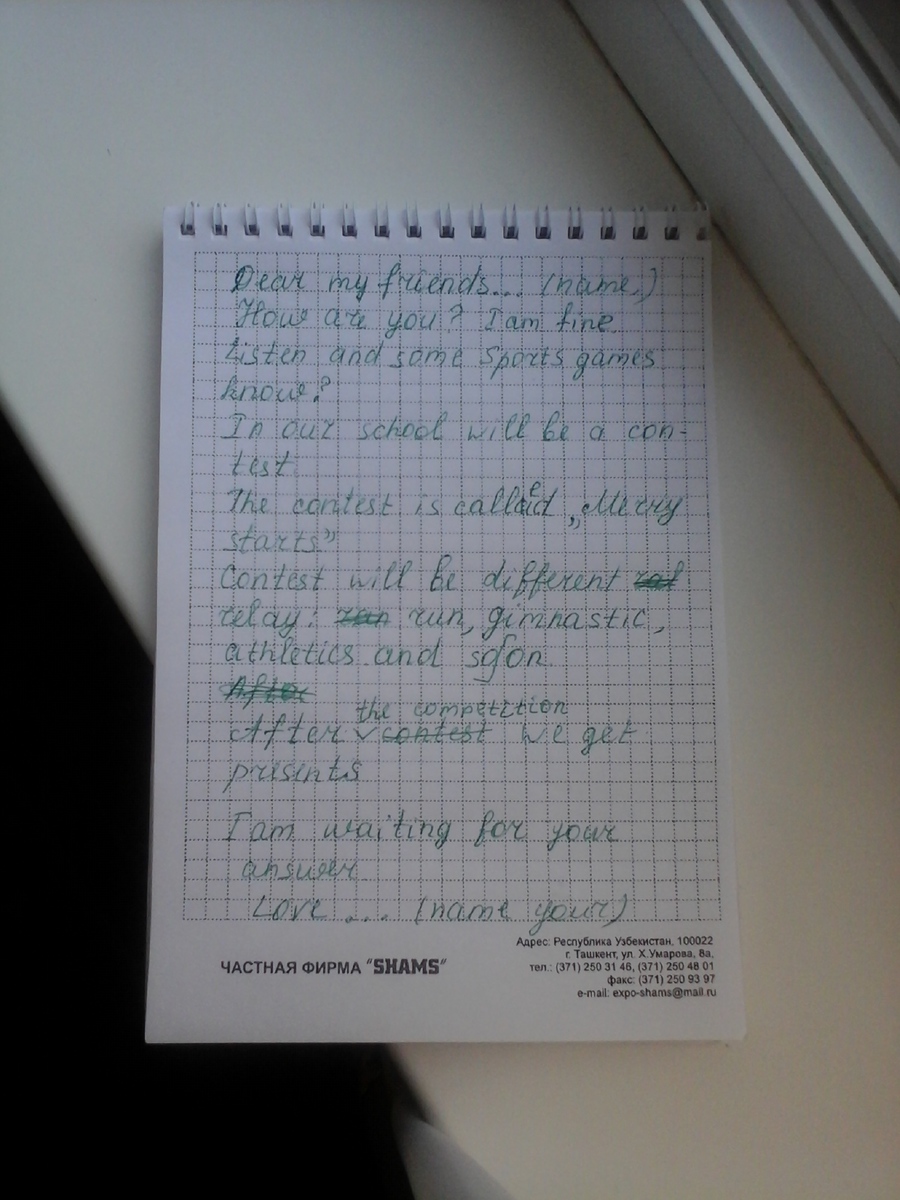 Dear my friends... (name.)
How are you? I am fine
Listen and some Sports games
know?
In our school will be a con-
test
The contest is called „Merry
starts”
Contest will be different
relay: run, gimnastic,
athletics and so on
After
the competition
After contest we get
presents
I am waiting for your
answer
Love ... (name your)
ЧАСТНАЯ ФИРМА "SHAMS"
Адрес: Республика Узбекистан, 100022
г. Ташкент, ул. Х.Умарова, 8а,
тел.: (371) 250 31 46, (371) 250 48 01
факс: (371) 250 93 97
e-mail: expo-shams@mail.ru